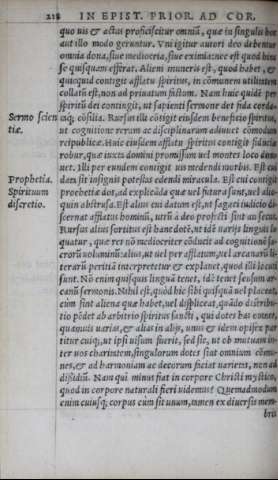 218 IN EPIST. PRIOR. AD COR.
quo uis & actus proficiscitur omniū, quæ in singulis hoc
aut illo modo geruntur. Vni igitur autori deo debentur
omnia dona, siue mediocria, siue eximia: nec est quod hinc
se quisquam efferat. Alieni muneris est, quod habet, &
quicquid contigit afflatu spiritus, in cōmunem utilitatem
collatū est, non ad priuatum fastum. Nam huic quidē per
spiritū dei contingit, ut sapienti sermone det fida corda-
Sermo scien taq; cōsilia. Rursus illi cōtigit eiusdem beneficio spiritus,
tiæ. ut cognitione rerum ac disciplinarum adiuuet cōmodum
reipublicæ. Huic eiusdem afflatu spiritus contigit fiduciæ
robur, quæ iuxta domini promissum uel montes loco dimo
uet. Illi per eundem contigit uis medendi morbis. Est cui
Prophetia. data sit insignis potestas edendi miracula. Est cui contigit
Spirituum prophetiæ dos, ad explicāda quæ uel futura sunt, uel alio-
discretio. quin abstrusa. Est alius cui datum est, ut sagaci iudicio di-
scernat afflatus hominū, utrū à deo profecti sint an secus.
Rursus alius sortitus est hanc dotē, ut idē uarijs linguis lo
quatur, quæ res nō mediocriter cōducit ad cognitionē sa-
crorū uoluminū: alius, ut uel per afflatum, uel arcanarū li-
terarū peritiā interpretetur & explanet, quod illi locuti
sunt. Nō enim quisquis linguā tenet, idē tenet sensum ar-
cani sermonis. Nihil est, quod hic sibi quisquā uel placeat,
cum sint aliena quæ habet, uel displiceat, quādo distribu-
tio pēdet ab arbitrio spiritus sancti, qui dotes has omnes,
quamuis uarias, & alias in alijs, unus & idem opifex par
titur cuiq;, ut ipsi uisum fuerit, sed sic, ut ob mutuam in-
ter uos charitatem, singulorum dotes fiant omnium cōmu-
nes, & ad harmoniam ac decorum faciat uarietas, non ad
dissidiū. Nam qui minus fiat in corpore Christi mystico,
quod in corpore naturali fieri uidemus? Quemadmodum
enim cuiusq; corpus cùm sit unum, tamen ex diuersis mem-
bris